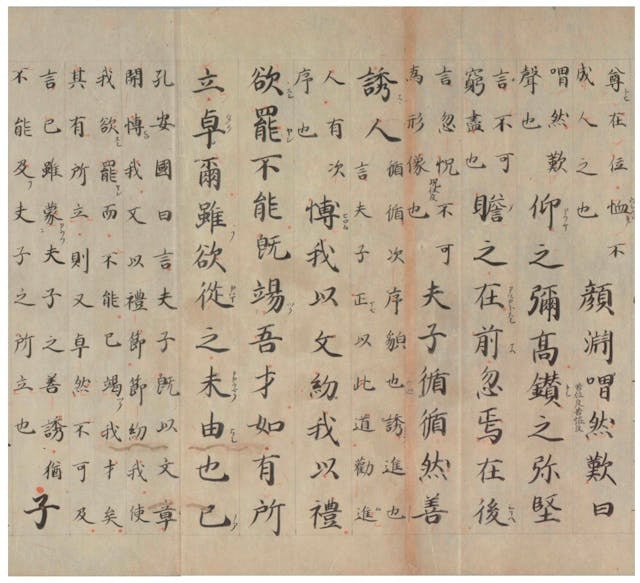 尊在位恤不
成人之也
顔淵喟然歎曰
喟然歎
聲也
仰之彌髙鑚之弥堅
言不可
窮盡也
瞻之在前忽焉在後
言忽怳不可
為形像也
夫子循循然善
誘人
循循次序貌也誘進也
言夫子正以此道勸進
人有次
序也
愽我以文約我以禮
欲罷不能既竭吾才如有所
立卓爾雖欲從之未由也已
孔安國曰言夫子既以文章
開愽我又以禮節節約我使
我欲罷而不能已竭我才矣
其有所立則又卓然不可及
言已雖蒙夫子之善誘猶
不能及夫子之所立也
子